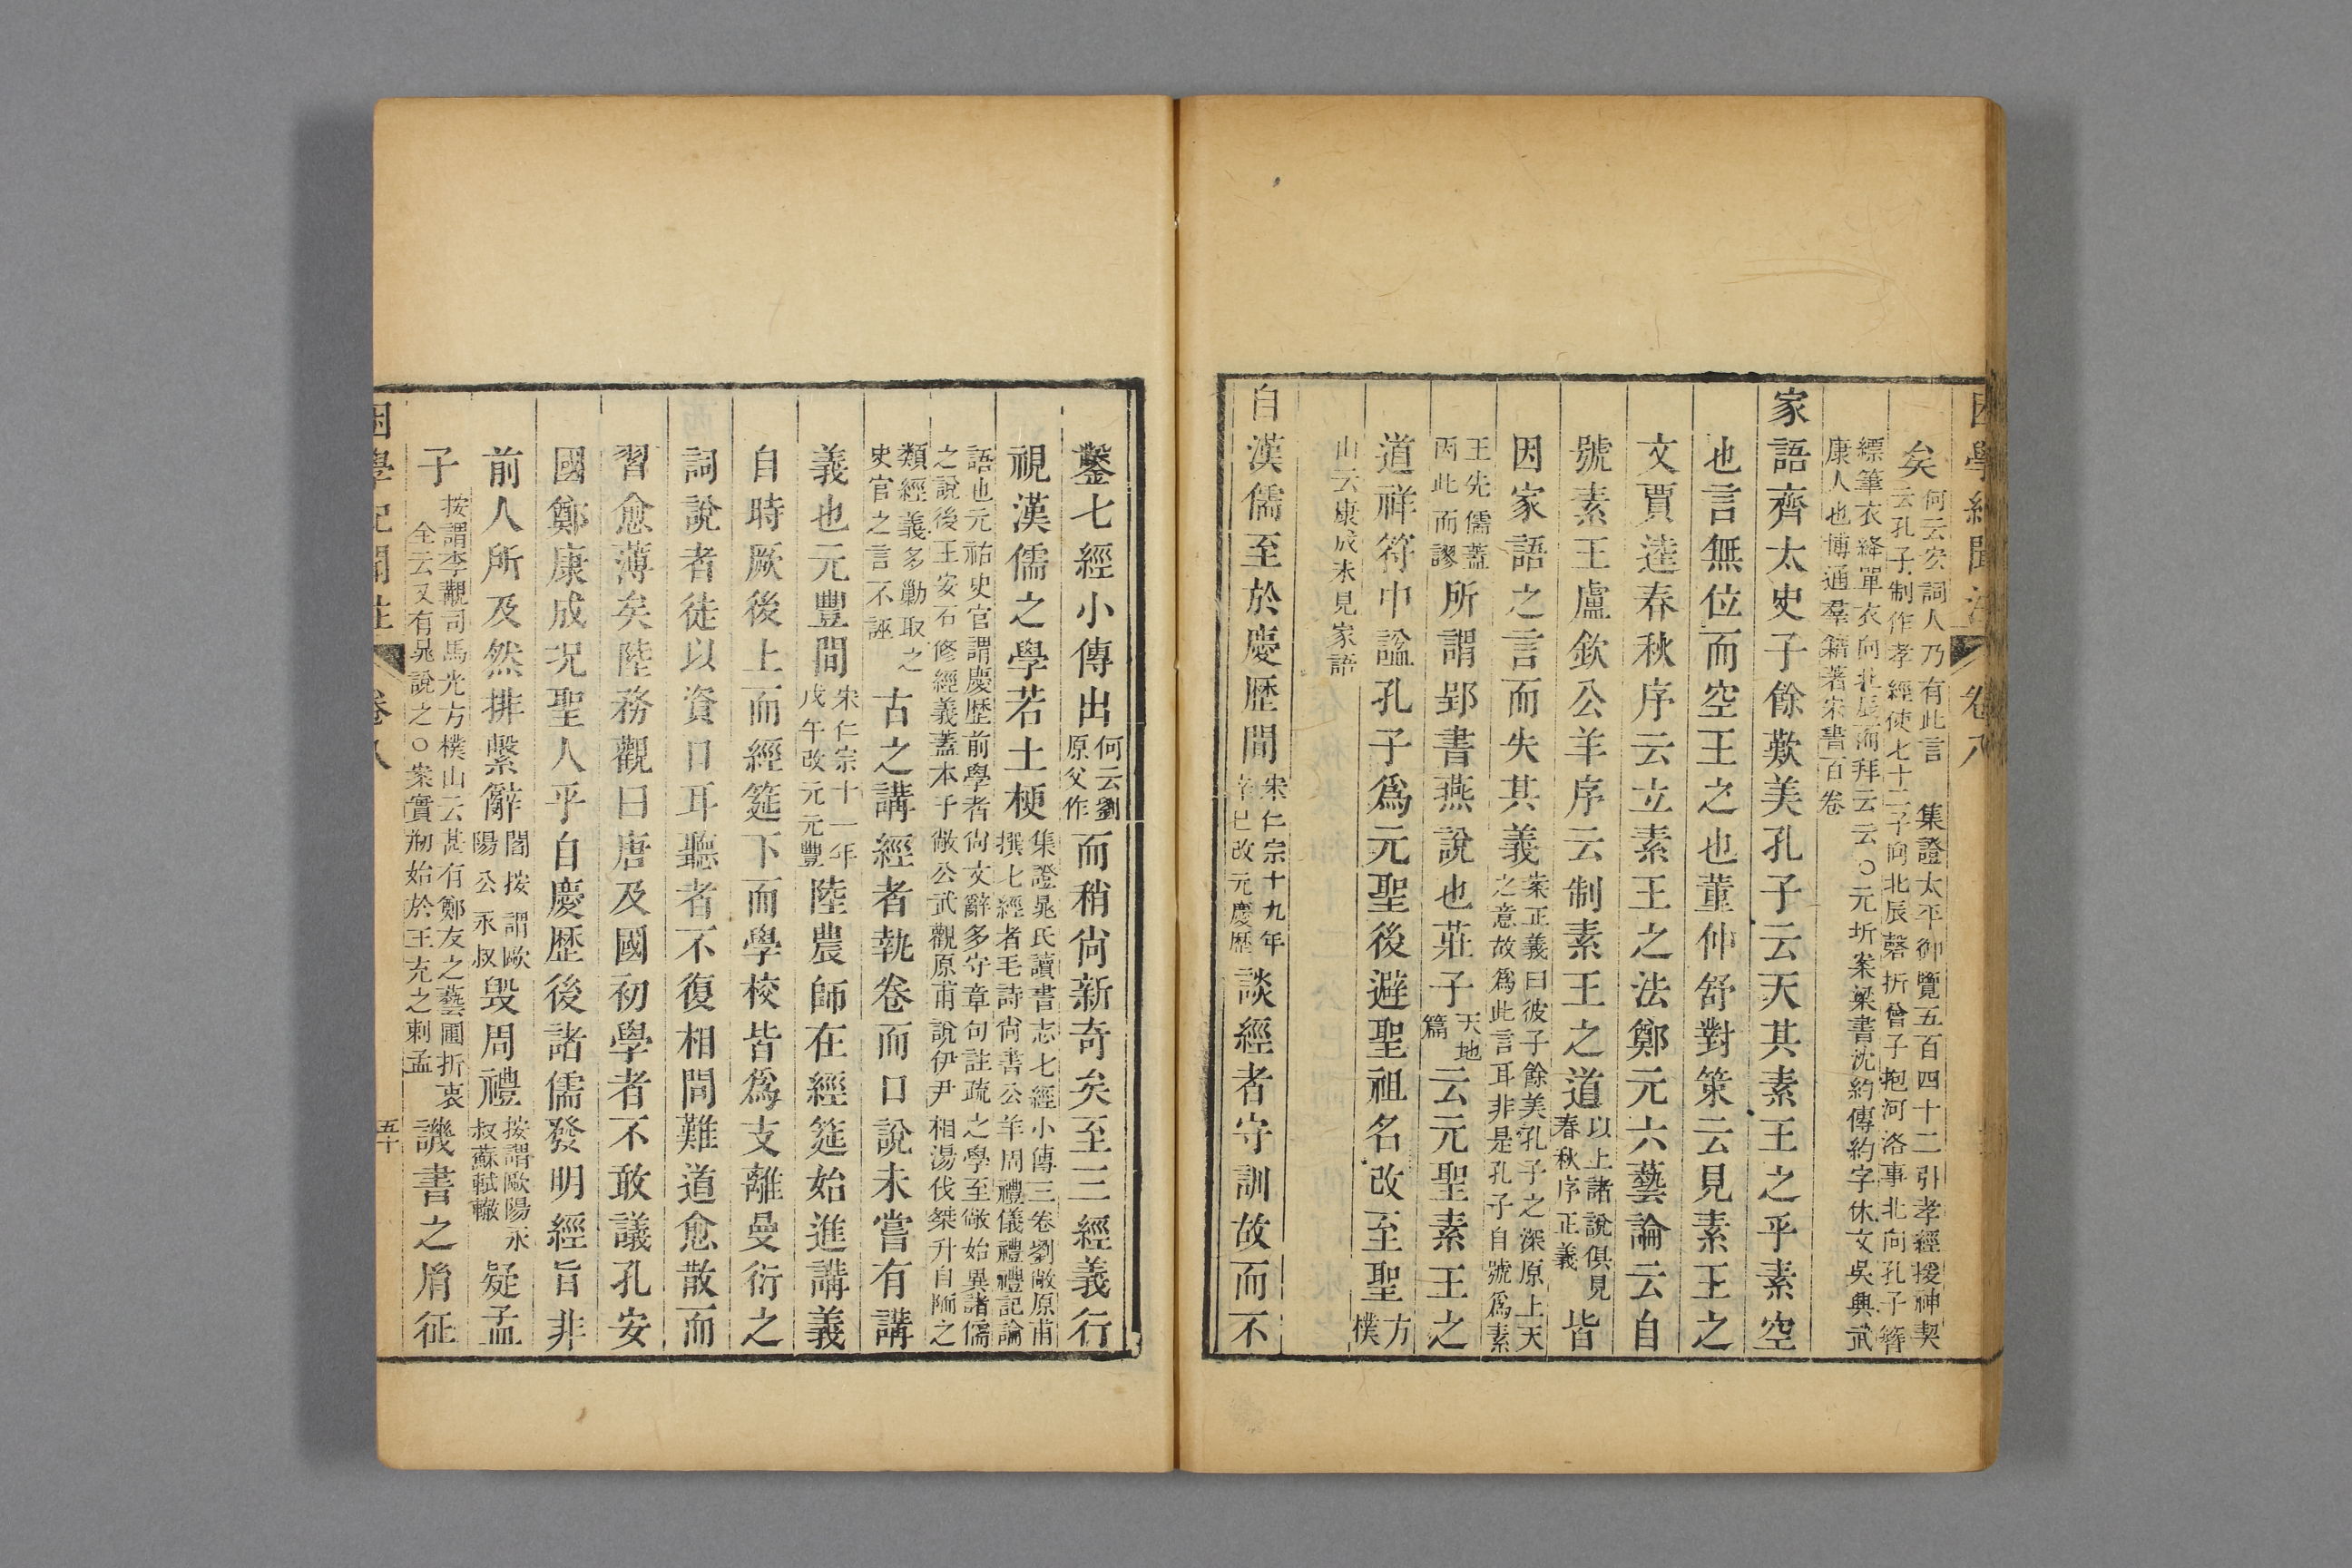 困學紀聞注 卷八
矣何云宏詞人乃有此言 集證太平御覽五百四十二引孝經援神契云孔子制作孝經使七十二子向北辰磬折曾子抱河洛事北向孔子簪
縹筆衣絳單衣向北辰而拜云云○元圻案梁書沈約傳約字休文吳興武康人也博通羣籍著宋書百卷
家語齊太史子餘歎美孔子云天其素王之乎素空
也言無位而空王之也董仲舒對策云見素王之
文賈逵春秋序云立素王之法鄭元六藝論云自
號素王盧欽公羊序云制素王之道以上諸說俱見春秋序正義皆
因家語之言而失其義案正義曰彼子餘美孔子之深原上天之意故爲此言耳非是孔子自號爲素
王先儒蓋因此而謬所謂郢書燕說也莊子天地篇云元聖素王之
道祥符中諡孔子爲元聖後避聖祖名改至聖方樸
山云康成未見家語
自漢儒至於慶歷間宋仁宗十九年辛巳改元慶歷談經者守訓故而不
鑿七經小傳出何云劉原父作而稍尙新奇矣至三經義行
視漢儒之學若土梗集證晁氏讀書志七經小傳三卷劉敞原甫撰七經者毛詩尙書公羊周禮儀禮禮記論
語也元祐史官謂慶歷前學者尙文辭多守章句註疏之學至敞始異諸儒之說後王安石修經義蓋本于敞公武觀原甫說伊尹相湯伐桀升自陑之
類經義多勦取之史官之言不誣古之講經者執卷而口說未嘗有講
義也元豐間宋仁宗十一年戊午改元元豐陸農師在經筵始進講義
自時厥後上而經筵下而學校皆爲支離曼衍之
詞說者徒以資口耳聽者不復相問難道愈散而
習愈薄矣陸務觀曰唐及國初學者不敢議孔安
國鄭康成況聖人乎自慶歷後諸儒發明經旨非
前人所及然排繫辭閻按謂歐陽公永叔毀周禮按謂歐陽永叔蘇軾轍疑孟
子按謂李覯司馬光方樸山云甚有鄭友之藝圃折衷全云又有晁說之○案實刱始於王充之刺孟譏書之胤征
困學紀聞注 卷八 五十